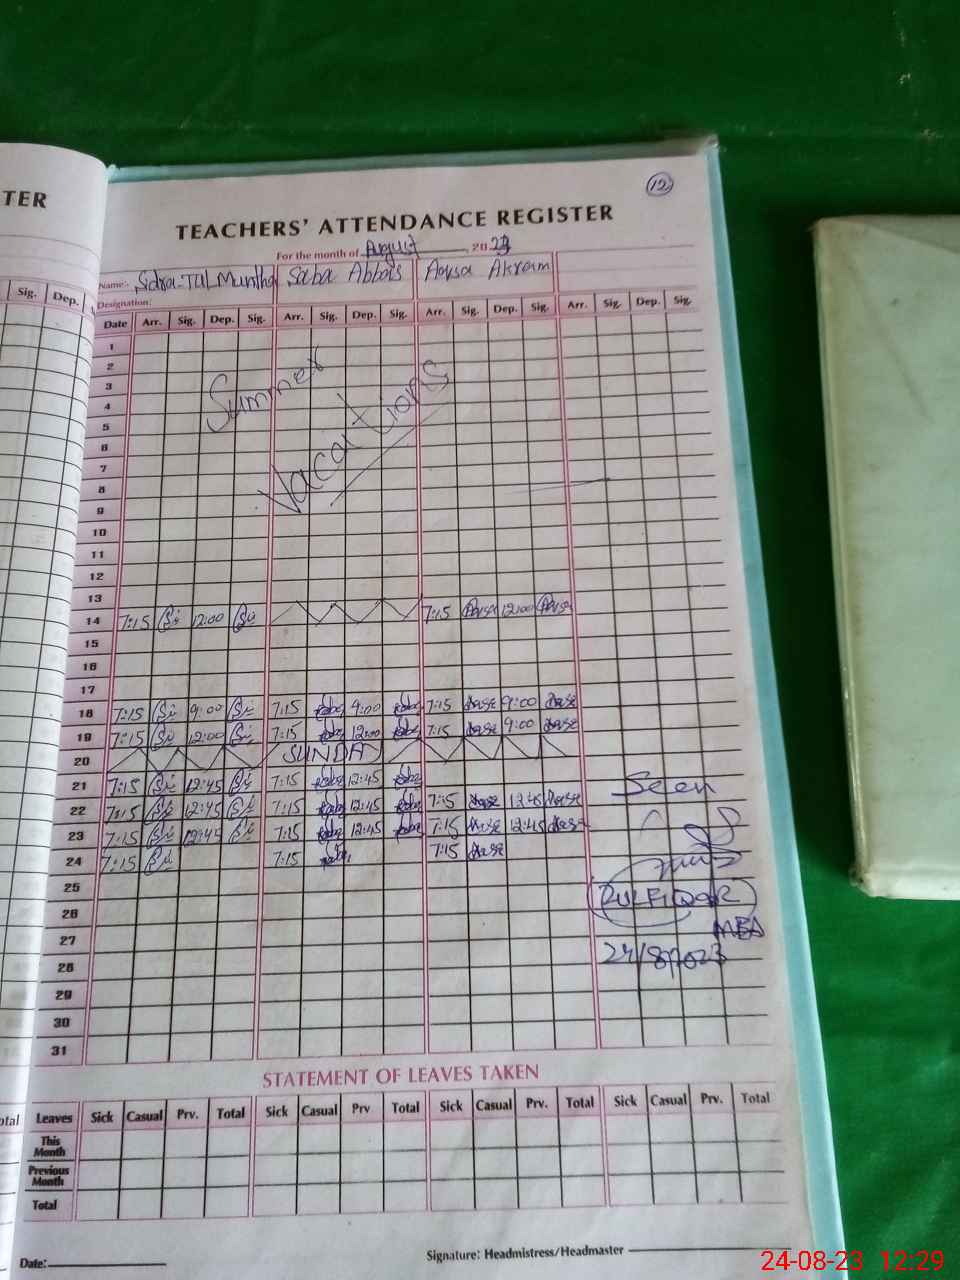 TER
12
TEACHERS' ATTENDANCE REGISTER
For the month of August, 2023
Name:. Sidra-TUL Muntha Saba Abbas Aqsa Akram
Designation:
Sig. Dep.
Date Arr. Sig. Dep. Sig. Arr. Sig. Dep. Sig. Arr. Sig. Dep. Sig. Arr. Sig. Dep. Sig.
1
2
3
4
5
Summer
6
7
Vacaitions
8
9
10
11
12
13
14 7:15 12:00 7:15 12:00
15
16
17
18 7:15 9:00 7:15 9:00 7:15 9:00
19 7:15 12:00 7:15 12:00 7:15 9:00
20 SUNDAY
21 7:15 12:45 7:15 12:45
Seen
22 7:15 12:45 7:15 12:45 7:15 12:45
23 7:15 12:45 7:15 12:45 7:15 12:45
24 7:15 7:15 7:15
25
ZULFIQAR
26
MEA
27
24/8/2023
28
29
30
31
STATEMENT OF LEAVES TAKEN
otal Leaves Sick Casual Prv. Total Sick Casual Prv Total Sick Casual Prv. Total Sick Casual Prv. Total
This Month
Previous Month
Total
Date:
Signature: Headmistress/Headmaster
24-08-23 12:29